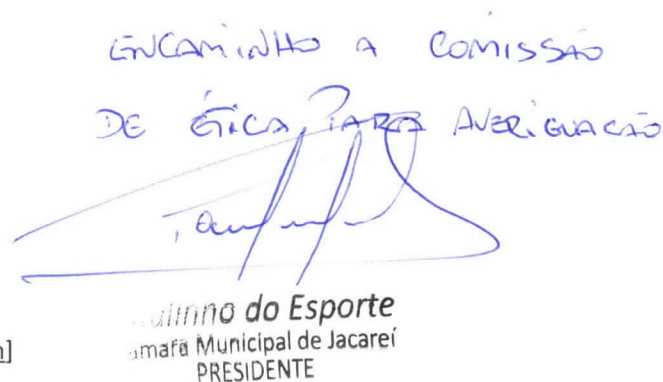 ENCAMINHO A COMISSÃO
DE ÉTICA, PARA AVERIGUACÃO
do Esporte
Municipal de Jacareí
PRESIDENTE